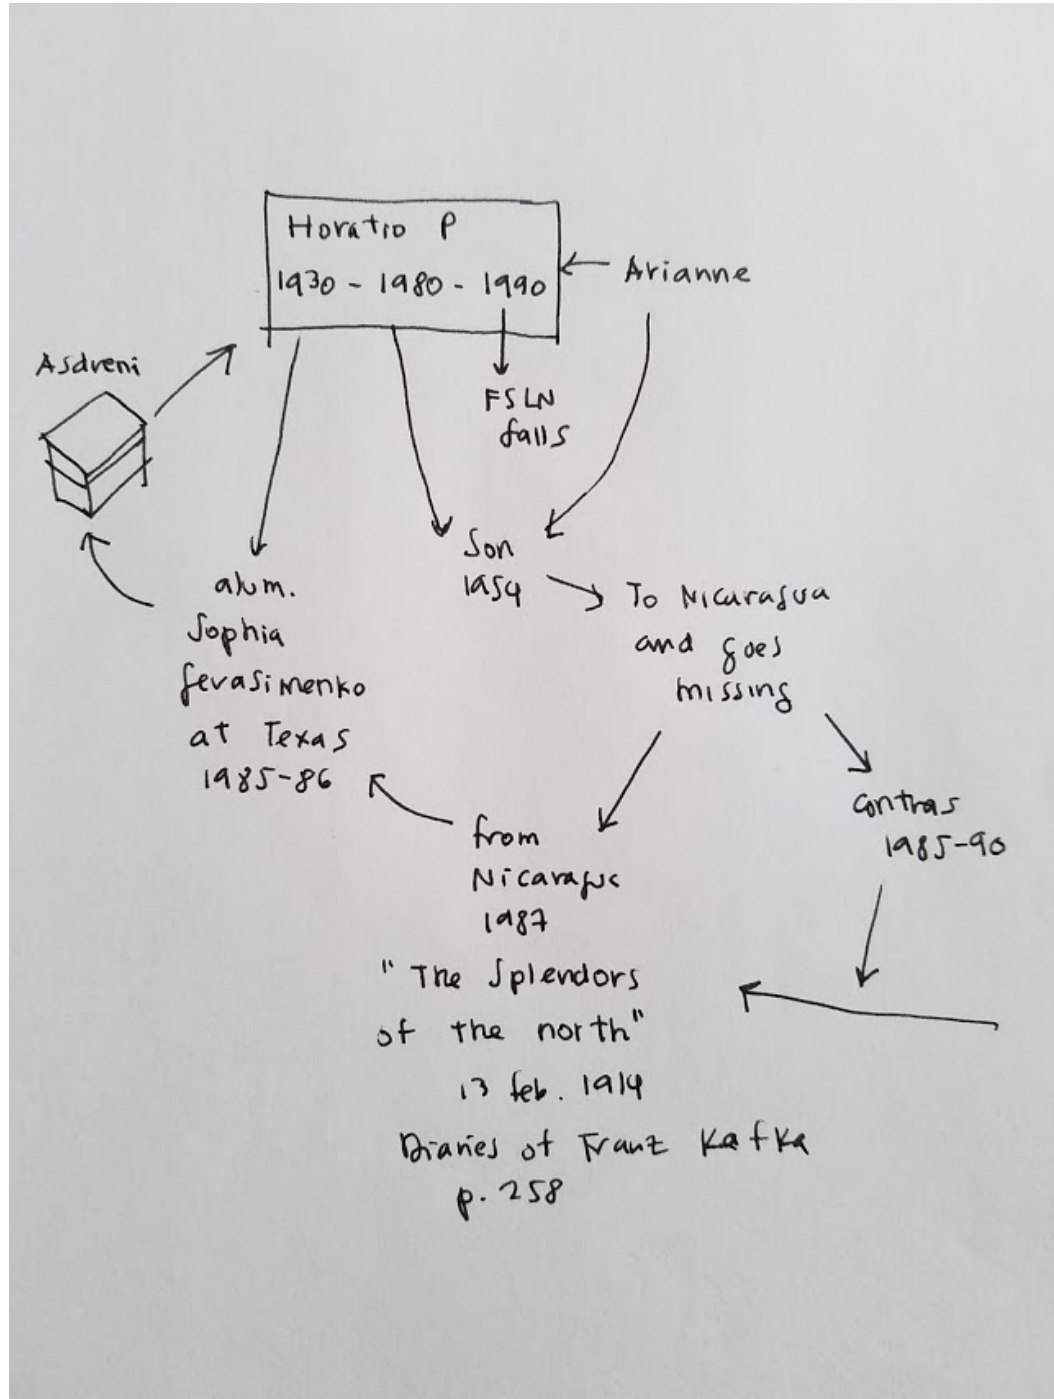 Horatio P
1930 - 1980 - 1990
Arianne
Asdreni
FSLN
falls
Son
1954
alum.
Sophia
Gerasimenko
at Texas
1985-86
To Nicaragua
and goes
missing
Contras
1985-90
from
Nicaragua
1987
"The Splendors
of the north"
13 feb. 1914
Diaries of Franz Kafka
p. 258